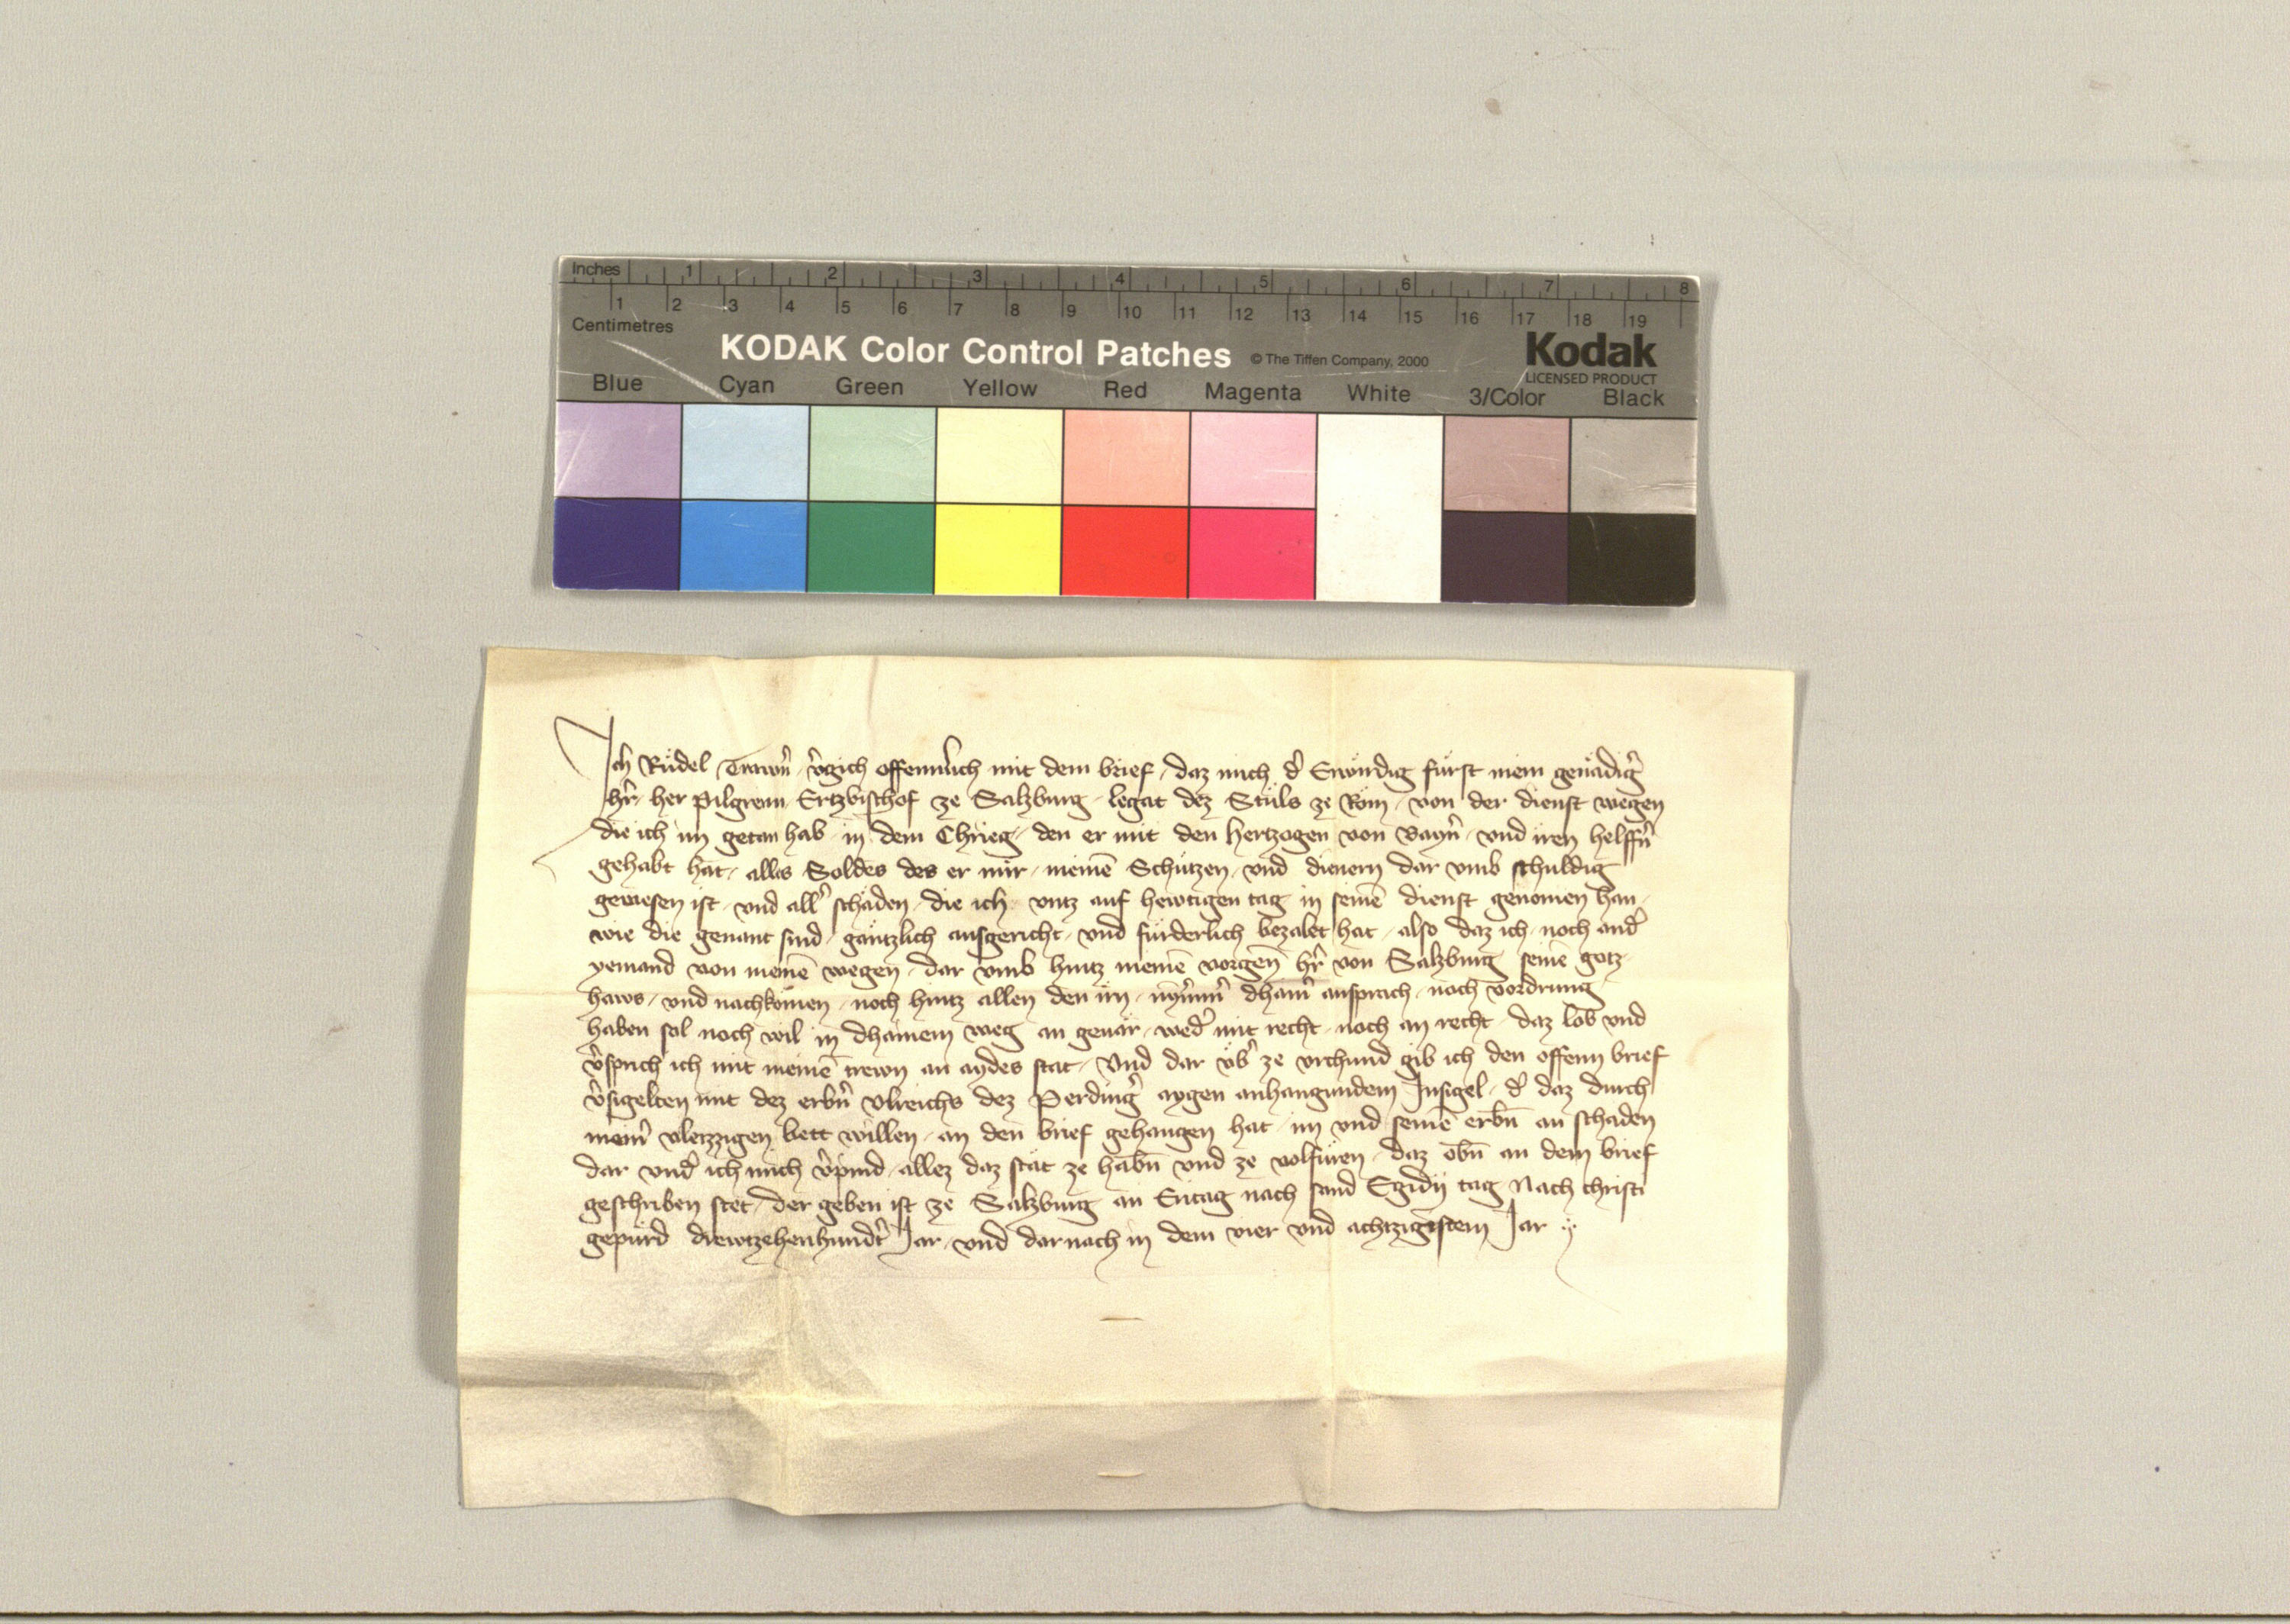 Inches 1 2 3 4 5 6 7 8
1 2 3 4 5 6 7 8 9 10 11 12 13 14 15 16 17 18 19
Centimetres
KODAK Color Control Patches © The Tiffen Company, 2000 Kodak
LICENSED PRODUCT
Blue Cyan Green Yellow Red Magenta White 3/Color Black
Ich Rüdel Trawn̄ v̉gich offennlich mit dem brief, daz mich d̉ Erwirdig fürst mein genädig̉
hr̄ her Pilgreim Ertzbischof ze Salzburg legat dez Stůls ze Rom, von der dienst wegen
die ich im getan hab in dem Chrieg, den er mit den hertzogen von Bayrn̄ vnd iren helffn̄
gehabt hat, alles Soldes des er mir, meinē Schützen, vnd dienern dar vmb schuldig
gewesen ist, vnd all̉ schäden, die ich vntz auf hewtigen tag in seinē dienst genomen han,
wie die genant sind, gäntzlich ausgericht, vnd fürderlich bezalet hat, also daz ich noch and̉
yemand von meinē wegen, dar vmb hintz meinē vorgen̄ hr̄n von Salzburg seinē gotz
haws, vnd nachkömen, noch hintz allen den irn, nymm̉ dhain̉ ansprach, noch vordrung
haben sol noch wil in dhainem weg an geuär, wed̉ mit recht, noch an recht, daz lob vnd
v̉sprich ich mit meinē trewn an aydes stat, Vnd dar vb̉ ze vrchund gib ich den offenn brief
v̉sigelten mit dez erbn̄ Vlreichs dez Perding̉ aygen anhangundem Insigel, d̉ daz durch
mein̉ vleizzigen bett willen, an den brief gehangen hat, im vnd seinē erbn̄ an schaden
dar vnd̉ ich mich v̉pind, allez daz stät ze habn̄ vnd ze volfüren, daz obn̄ an dem brief
geschriben stet, der geben ist ze Salzburg an Eritag nach sand Egidy tag Nach christi
gepürd drewtzehenhund̉t Jar, vnd darnach in dem vier vnd achtzigistem Jar